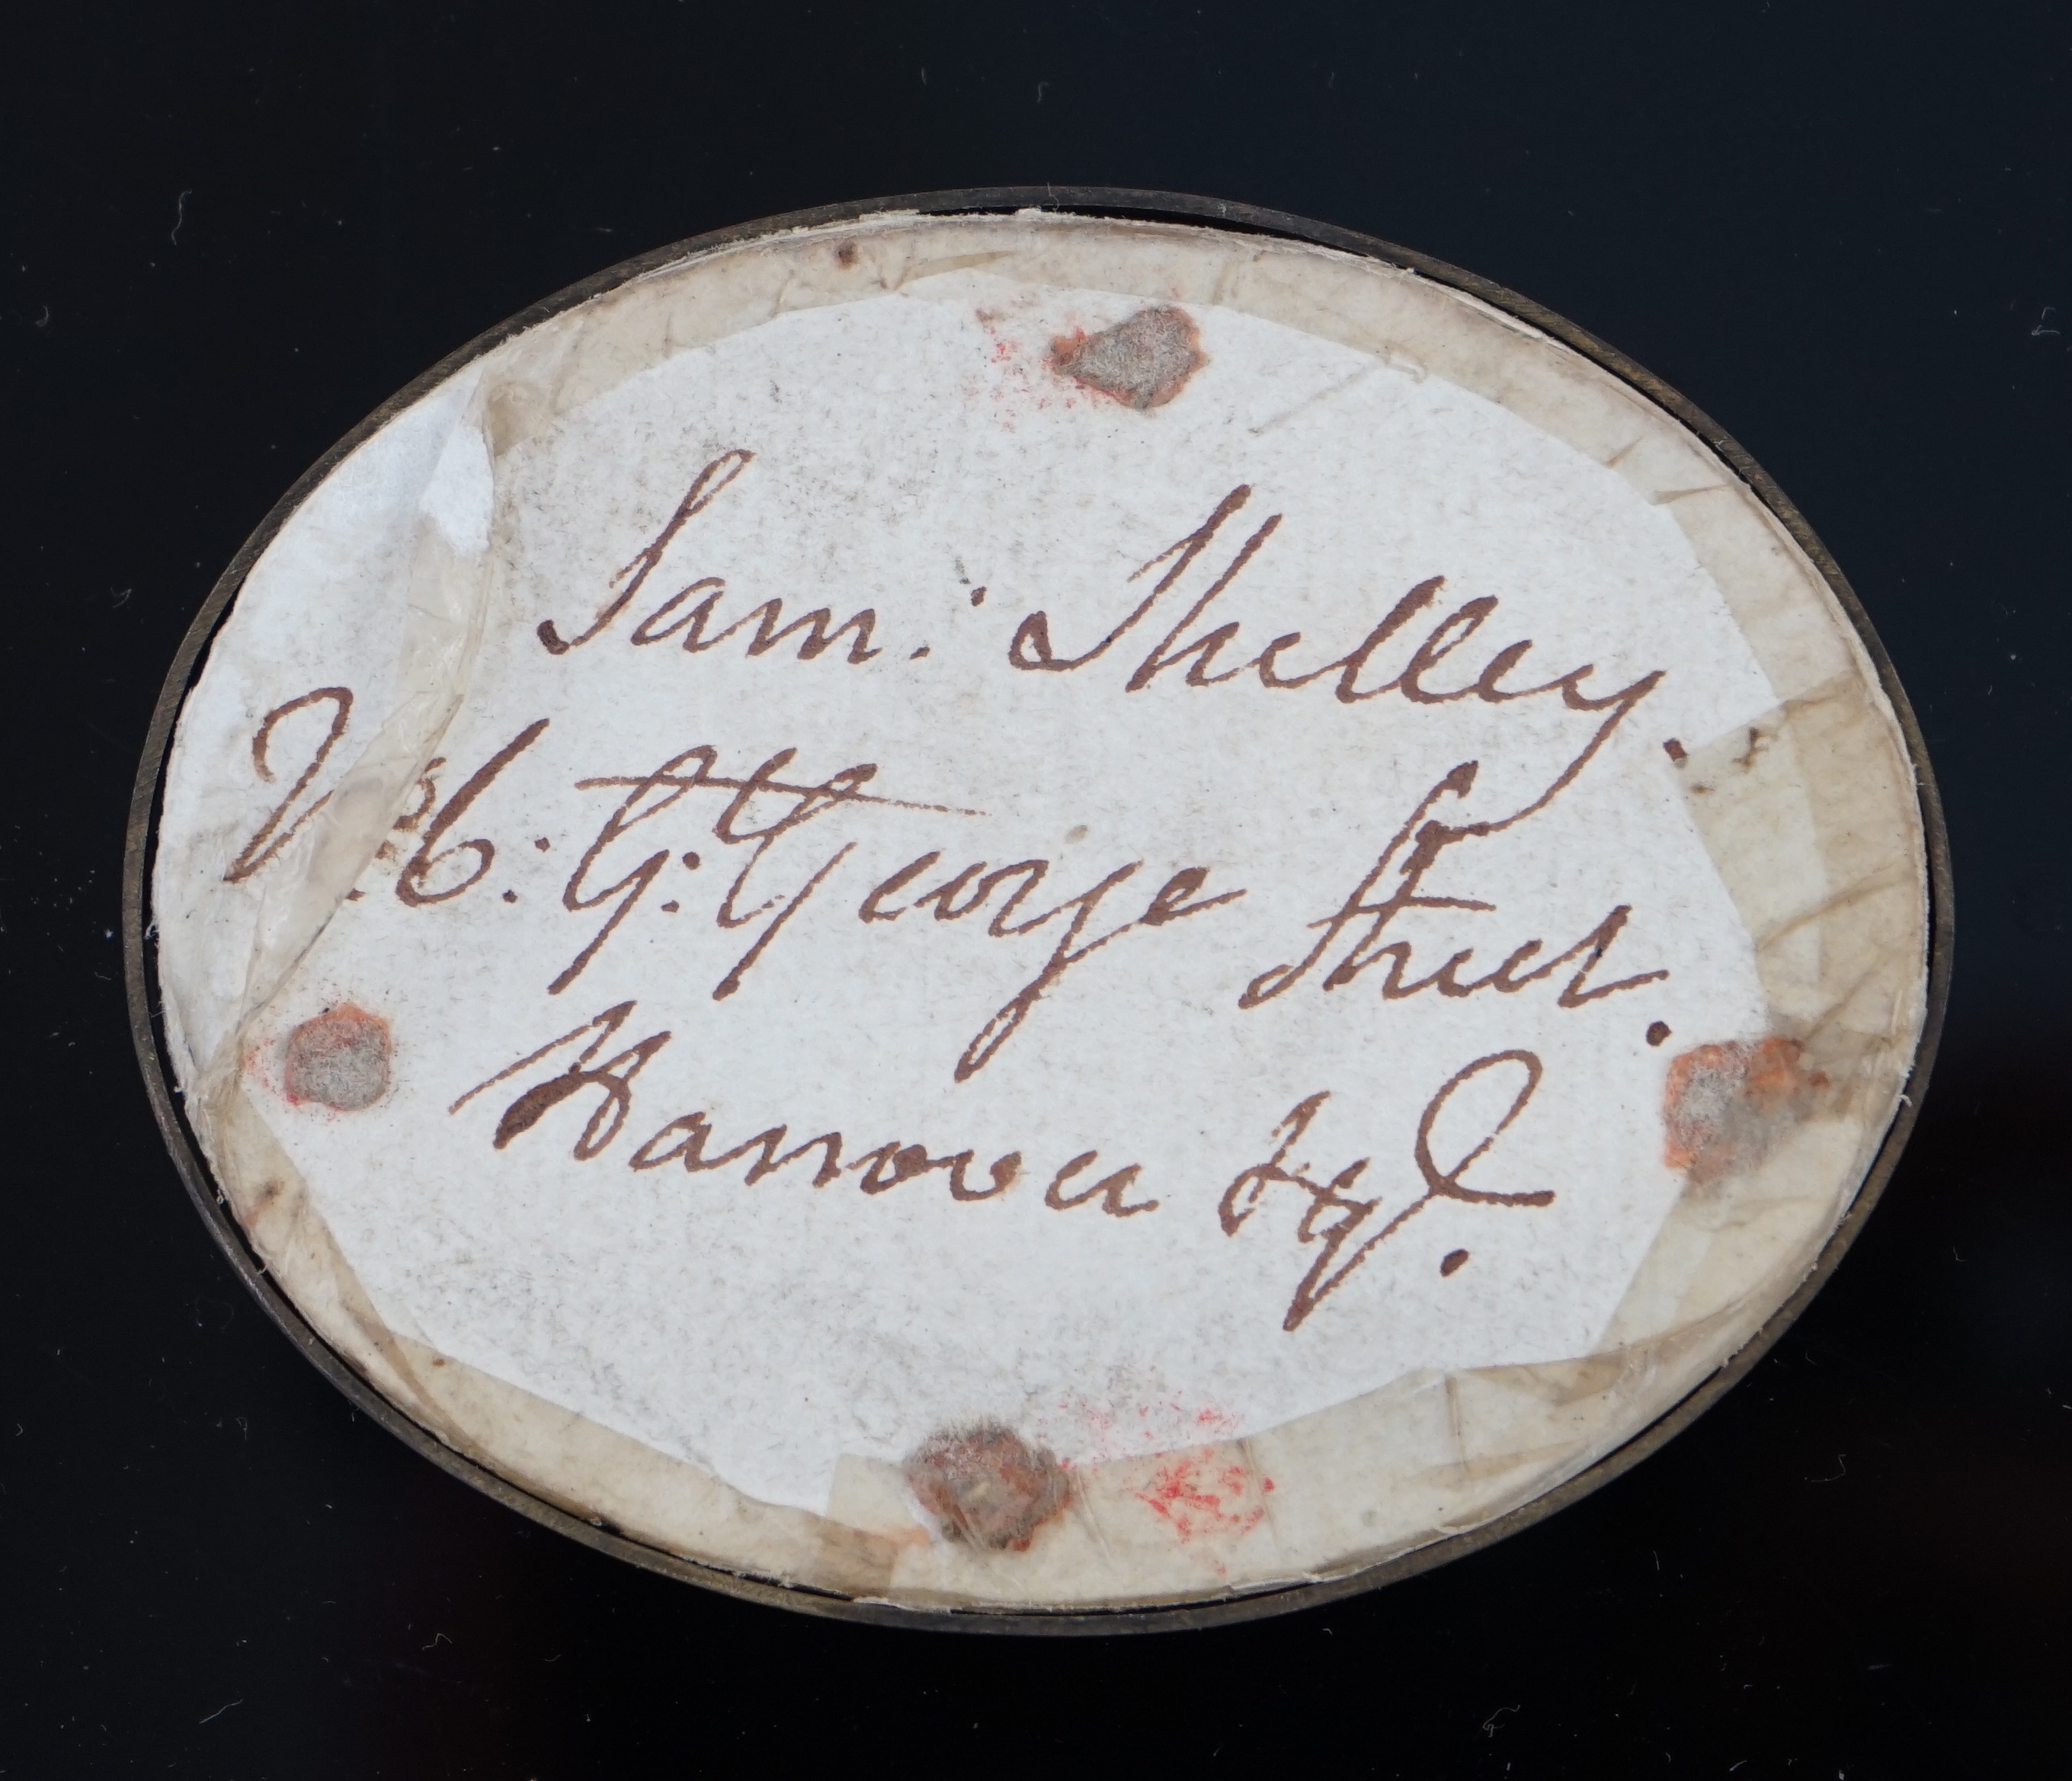 Sam: Shelley.
No 6: G: George Street.
Hanover Sqr.